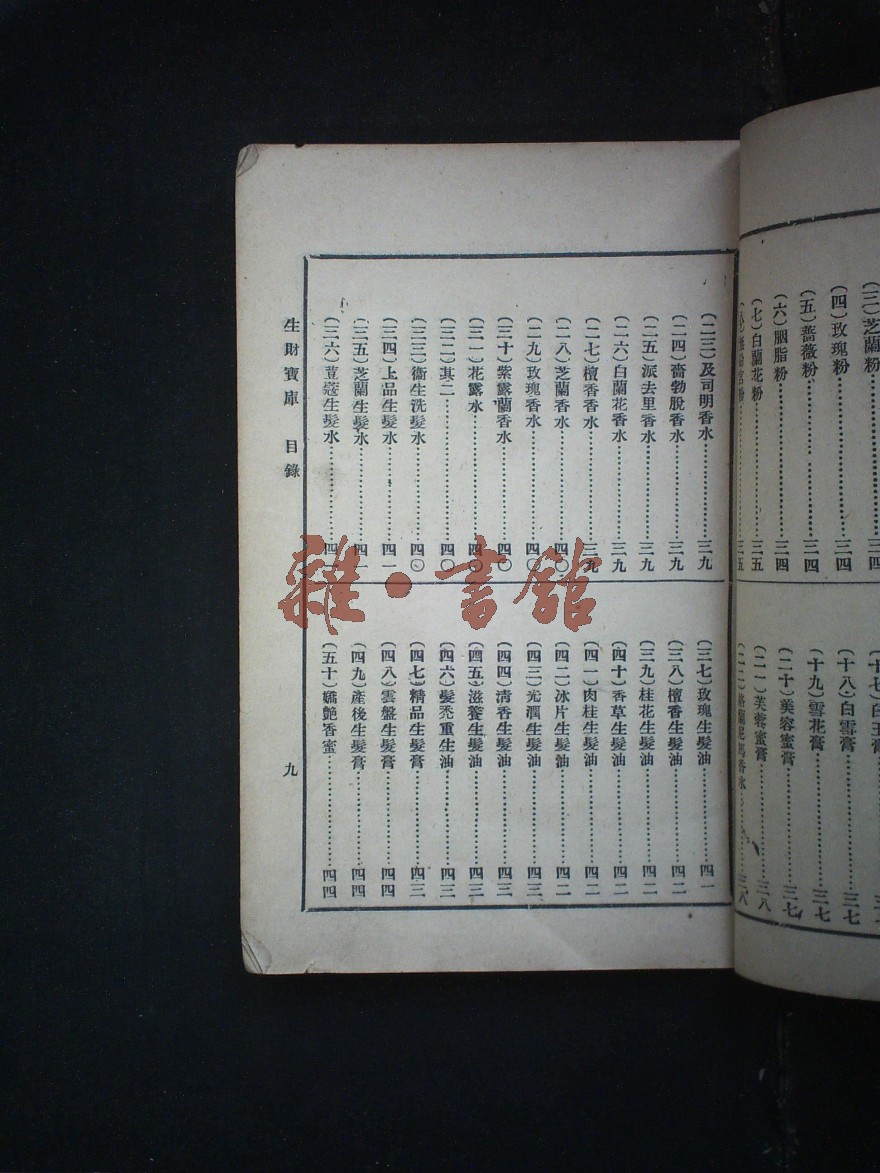 (三)芝蘭粉……三四
(四)玫瑰粉……三四
(五)薔薇粉……三四
(六)胭脂粉……三四
(七)白蘭花粉……三五
宮粉……三五
(十七)白玉膏……
(十八)白雪膏……三七
(十九)雪花膏……三七
(二十)美容蜜膏……三七
(二一)芙蓉蜜膏……三八
(二二)香水……三八
(二三)及司明香水……三九
(二四)嗇勃脫香水……三九
(二五)派去里香水……三九
(二六)白蘭花香水……三九
(二七)檀香香水……三九
(二八)芝蘭香水……四〇
(二九)玫瑰香水……四〇
(三十)紫露蘭香水……四〇
(三一)花露水……四〇
(三二)其二……四〇
(三三)衞生洗髮水……四〇
(三四)上品生髮水……四一
(三五)芝蘭生髮水……四一
(三六)荳蔻生髮水……四一
(三七)玫瑰生髮油……四一
(三八)檀香生髮油……四二
(三九)桂花生髮油……四二
(四十)香草生髮油……四二
(四一)肉桂生髮油……四二
(四二)冰片生髮油……四二
(四三)光潤生髮油……四三
(四四)清香生髮油……四三
(四五)滋養生髮油……四三
(四六)髮禿重生油……四三
(四七)精品生髮膏……四三
(四八)雲盤生髮膏……四四
(四九)產後生髮膏……四四
(五十)嬌艷香蜜……四四
生財寶庫 目錄 九
雜·書館